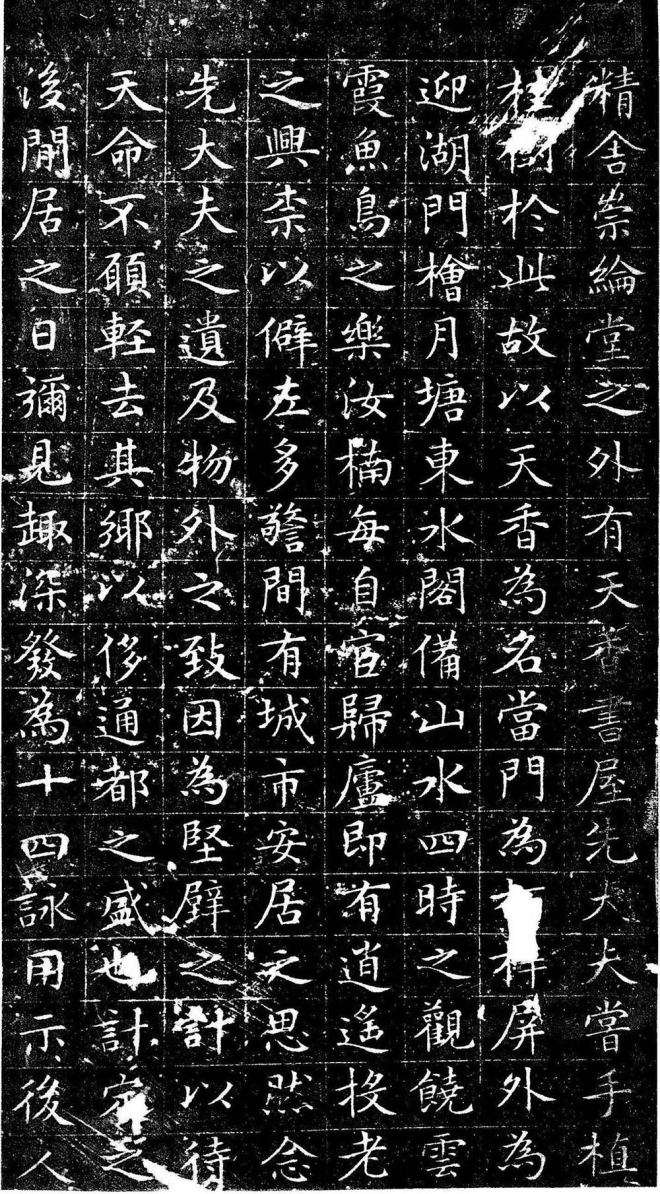 精舍崇綸堂之外有天香書屋先大夫嘗手植
桂樹於此故以天香為名當門為屏外為
迎湖門檜月塘東水閣備山水四時之觀饒雲
霞魚鳥之樂汝楠每自官歸廬即有逍遙投老
之興柰以僻左多警間有城市安居之思然念
先大夫之遺及物外之致因為堅辟之計以待
天命不願輕去其鄉以侈通都之盛也計定之
後閒居之日彌見趣深發為十四詠用示後人